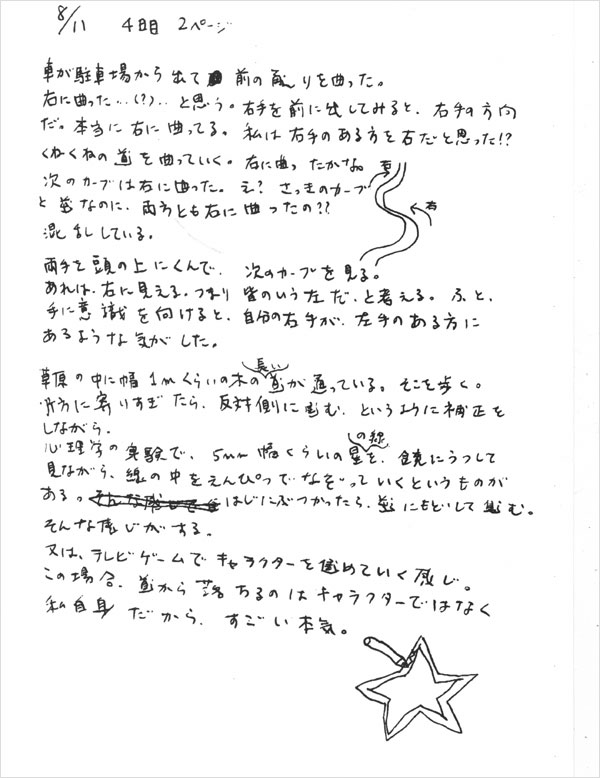 8/11 4日目 2ページ
車が駐車場から出て 前の通りを曲った。
右に曲った‥(?)‥と思う。右手を前に出してみると、右手の方向
だ。本当に右に曲ってる。私は右手のある方を右だと思った!?
くねくねの道を曲っていく。右に曲ったかな。
右
次のカーブは右に曲った。え? さっきのカーブ
と逆なのに、両方とも右に曲ったの??
右
混乱している。
両手を頭の上にくんで、次のカーブを見る。
あれは、右に見える。つまり皆のいう左だ、と考える。ふと、
手に意識を向けると、自分の右手が、左手のある方に
あるような気がした。
草原の中に幅1mくらいの木の長い道が通っている。そこを歩く。
片方に寄りすぎたら、反対側に進む、というように補正を
しながら。
心理学の実験で、5mm幅くらいの線の星を、鏡にうつして
見ながら、線の中をえんぴつでなぞっていくというものが
ある。はじにぶつかったら、逆にもどして進む。
そんな感じがする。
又は、テレビゲームでキャラクターを進めていく感じ。
この場合、道から落ちるのはキャラクターではなく
私自身だから、すごい本気。